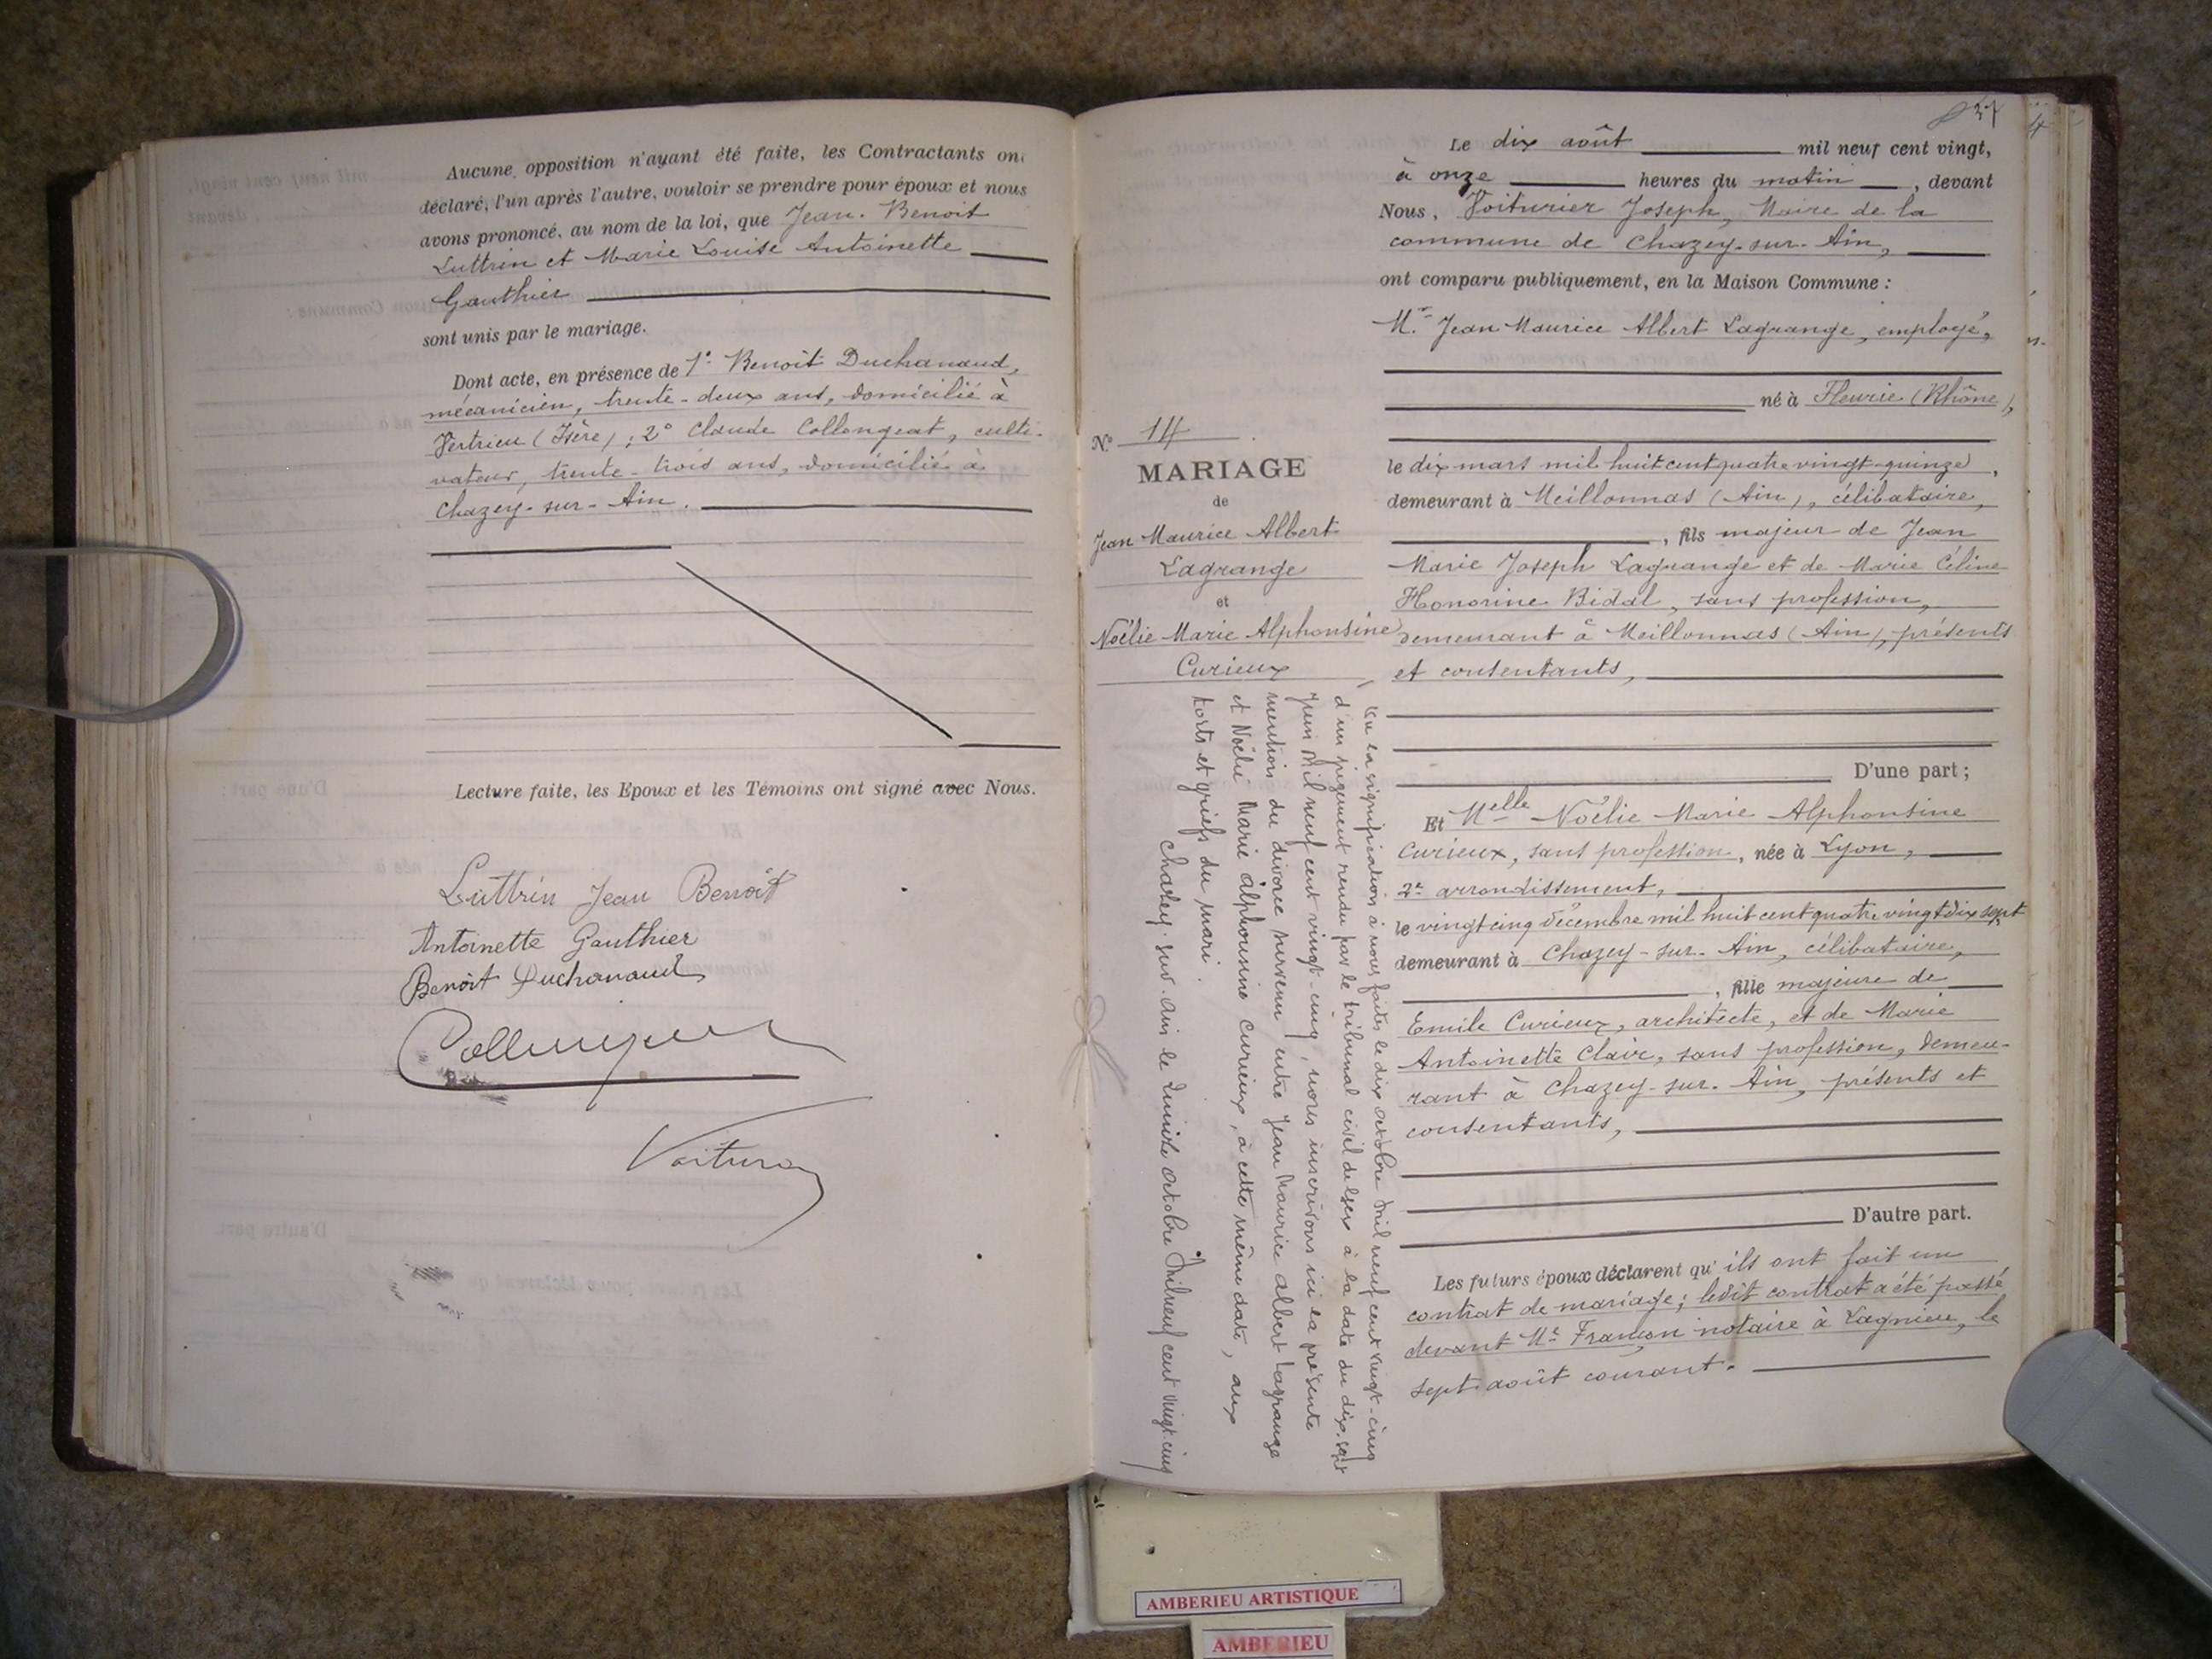 Aucune opposition n'ayant été faite, les Contractants ont
déclaré, l'un après l'autre, vouloir se prendre pour époux et nous
avons prononcé, au nom de la loi, que Jean-Benoit
Luttrin et Marie Louise Antoinette
Gauthier
sont unis par le mariage.
Dont acte, en présence de 1° Benoit Duchanaud,
mécanicien, trente-deux ans, domicilié à
Vertrieu (Isère); 2° Claude Collongeat, culti-
vateur, trente-trois ans, domicilié à
Chazey-sur-Ain.
Lecture faite, les Epoux et les Témoins ont signé avec Nous.
Luttrin Jean Benoît
Antoinette Gauthier
Benoit Duchanaud
27
N° 14
MARIAGE
de
Jean Maurice Albert
Lagrange
et
Noëlie Marie Alphonsine
Curieux
Vu la signification à nous faite le dix octobre mil neuf cent vingt-cinq
d'un jugement rendu par le tribunal civil de Gex à la date du dix-sept
juin mil neuf cent vingt-cinq, nous inscrivons ici la présente
mention du divorce survenu entre Jean Maurice Albert Lagrange
et Noélie Marie Alphonsine Curieux, à cette même date, aux
torts et griefs du mari.
Chazey-sur-Ain le quinze octobre mil neuf cent vingt-cinq
Le dix août mil neuf cent vingt,
à onze heures du matin, devant
Nous, Voiturier Joseph, Maire de la
commune de Chazey-sur-Ain,
ont comparu publiquement, en la Maison Commune :
M.r Jean Maurice Albert Lagrange, employé,
né à Fleurie (Rhône),
le dix mars mil huit cent quatre vingt-quinze,
demeurant à Meillonnas (Ain), célibataire,
, fils majeur de Jean
Marie Joseph Lagrange et de Marie Céline
Honorine Bidal, sans profession,
demeurant à Meillonnas (Ain), présents
et consentants,
D'une part ;
Et Melle Noëlie Marie Alphonsine
Curieux, sans profession, née à Lyon,
2e arrondissement,
le vingt cinq décembre mil huit cent quatre vingt dix sept
demeurant à Chazey-sur-Ain, célibataire,
, fille majeure de
Emile Curieux, architecte, et de Marie
Antoinette Clair, sans profession, demeu-
rant à Chazey-sur-Ain, présents et
consentants,
D'autre part.
Les futurs époux déclarent qu'ils ont fait un
contrat de mariage; ledit contrat a été passé
devant Me Françon notaire à Lagnieu, le
sept août courant.
AMBERIEU ARTISTIQUE
AMBERIEU